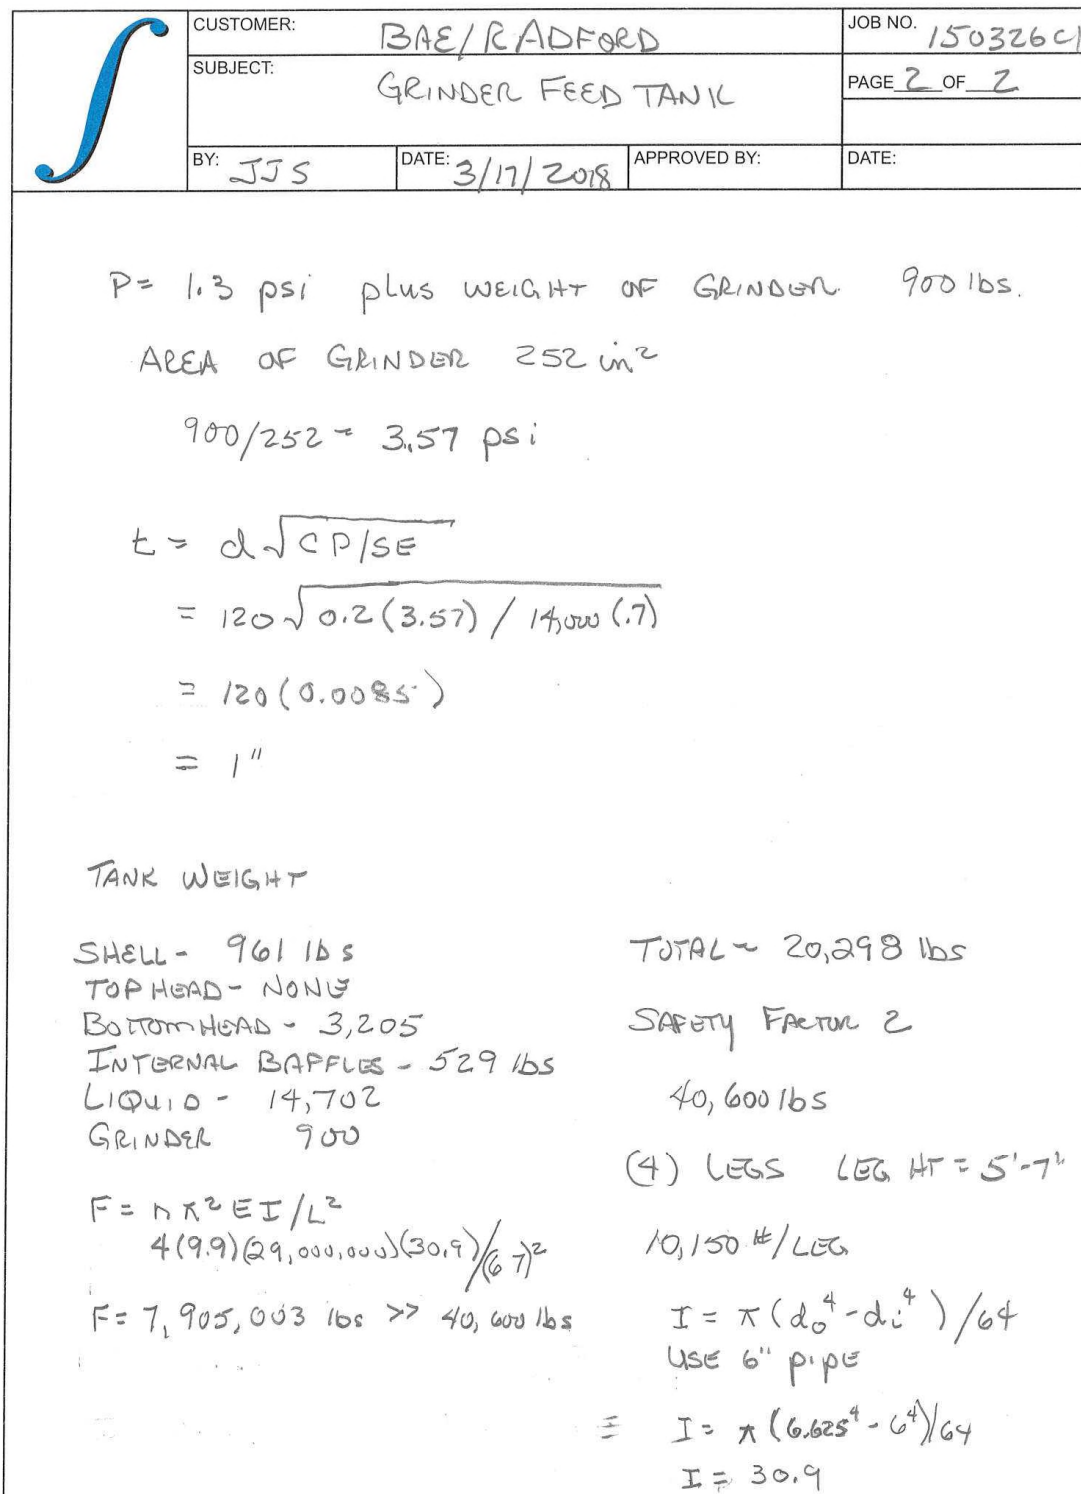 CUSTOMER: BAE/RADFORD
JOB NO. 150326C1
SUBJECT: GRINDER FEED TANK
PAGE 2 OF 2
BY: JJS
DATE: 3/17/2018
APPROVED BY:
DATE:
P= 1.3 psi plus WEIGHT OF GRINDER 900 lbs.
AREA OF GRINDER 252 in²
900/252 = 3.57 psi
t = d√CP/SE
= 120√0.2(3.57)/14,000(.7)
= 120(0.0085)
= 1"
TANK WEIGHT
SHELL - 961 lbs
TOP HEAD - NONE
BOTTOM HEAD - 3,205
INTERNAL BAFFLES - 529 lbs
LIQUID - 14,702
GRINDER 900
F = nπ²EI/L²
4(9.9)(29,000,000)(30.9)/(67)²
F = 7,905,003 lbs >> 40,600 lbs
TOTAL - 20,298 lbs
SAFETY FACTOR 2
40,600 lbs
(4) LEGS LEG HT = 5'-7"
10,150 #/LEG
I = π(do⁴-di⁴)/64
USE 6" pipe
I = π(6.625⁴-6⁴)/64
I = 30.9